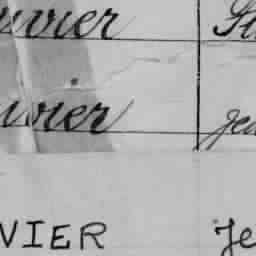 uvier St
uvier Jea
VIER Je